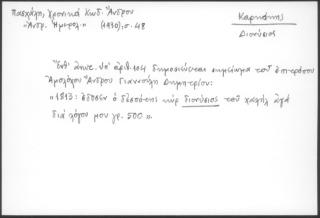 Πασχάλη, Χρονικά Κωδ. Ἄνδρου
"Ἀνδρ. Ἡμερολ." (1930), σ. 48
Καρηώτης
Διονύσιος
Ἐνθ' ἀνωτ. ὑπ' ἀριθ. 104 δημοσιεύεται σημείωμα τοῦ ἐπιτρόπου
Ἀμολόχου Ἄνδρου Γιαννούλη Δημητρίου:
"1813: ἔδοσεν ὁ δεσπότης κὺρ Διονύσιος τοῦ χαλὴλ ἀγᾶ
διὰ λόγου μου γρ. 500».